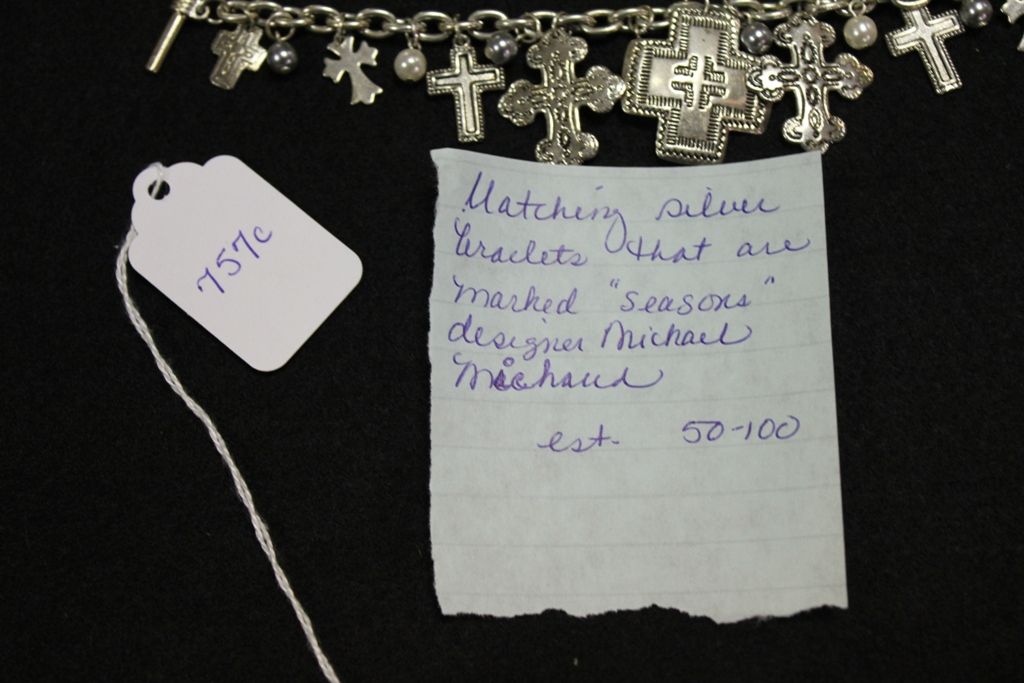 757c
Matching silver
braclets that are
marked "seasons"
designer Michael
Michaud
est. 50-100